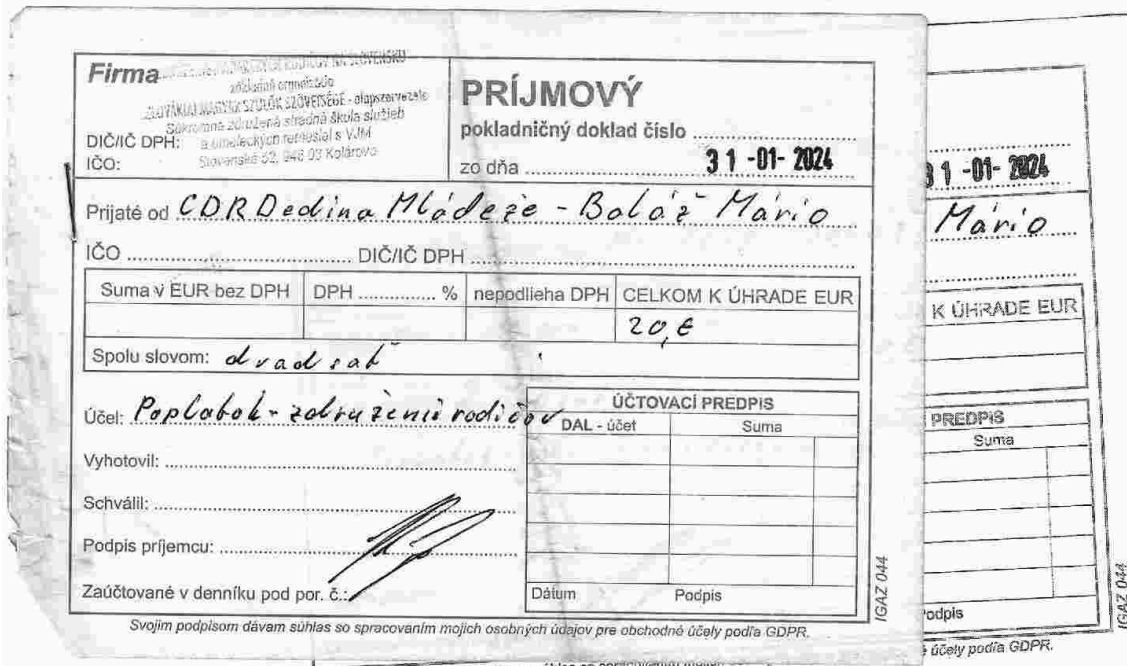 Firma
ZDRUŽENIE MAĎARSKÝCH RODIČOV NA SLOVENSKU
základná organizácia
SZLOVÁKIAI MAGYAR SZÜLŐK SZÖVETSÉGE - alapszervezete
Súkromná združená stredná škola služieb
a umeleckých remesiel s VJM
Slovenská 52, 946 03 Kolárovo
DIČ/IČ DPH:
IČO:
PRÍJMOVÝ
pokladničný doklad číslo
zo dňa 31-01-2024
Prijaté od CDR Dedina Mládeže - Baláž Mário
IČO DIČ/IČ DPH
Suma v EUR bez DPH DPH % nepodlieha DPH CELKOM K ÚHRADE EUR
20,€
Spolu slovom: dvadsať
Účel: Poplatok - združeniu rodičov
ÚČTOVACÍ PREDPIS
DAL - účet Suma
Vyhotovil:
Schválil:
Podpis príjemcu:
Zaúčtované v denníku pod por. č.:
Dátum Podpis
IGAZ 044
Svojim podpisom dávam súhlas so spracovaním mojich osobných údajov pre obchodné účely podľa GDPR.
31-01-2024
Mário
K ÚHRADE EUR
PREDPIS
Suma
odpis
IGAZ 044
účely podľa GDPR.